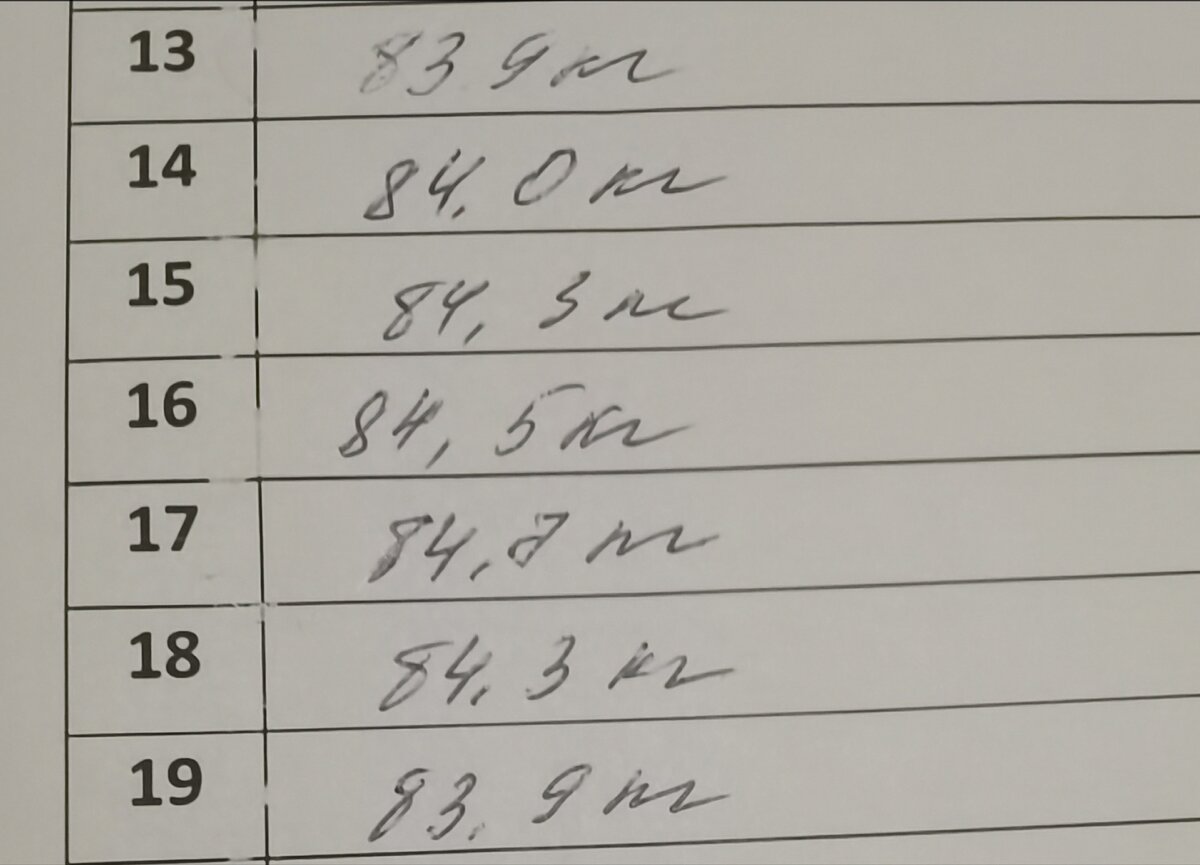 13 83.9 кг
14 84.0 кг
15 84,3 кг
16 84,5 кг
17 84,7 кг
18 84.3 кг
19 83.9 кг